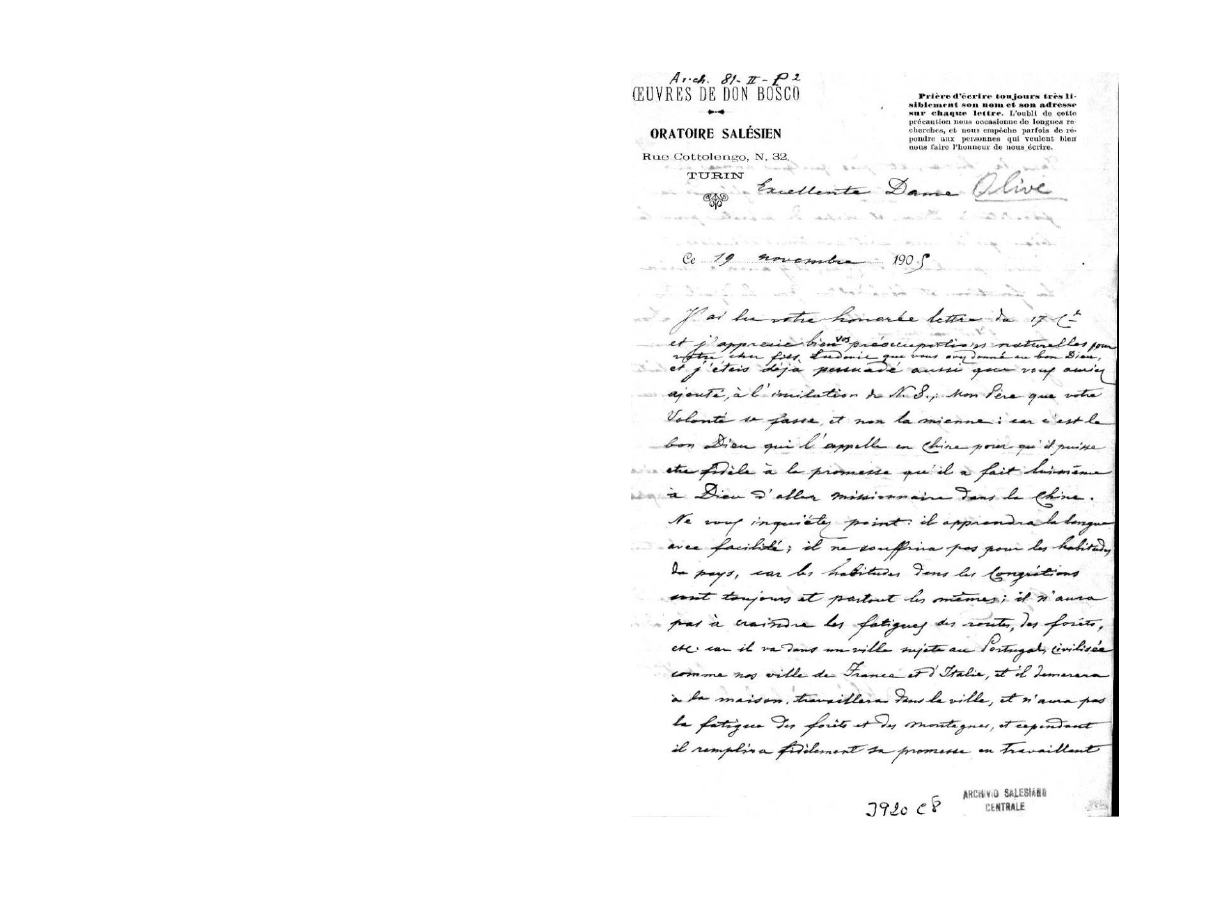 Arch. 81-II-P2
ŒUVRES DE DON BOSCO
ORATOIRE SALÉSIEN
Rue Cottolengo, N. 32.
TURIN
Prière d'écrire toujours très li-
siblement son nom et son adresse
sur chaque lettre. L'oubli de cette
précaution nous occasionne de longues re-
cherches, et nous empêche parfois de ré-
pondre aux personnes qui veulent bien
nous faire l'honneur de nous écrire.
Excellente Dame Olive
Ce 19 novembre 1905
J'ai lu votre honorée lettre du 17 Ct
et j'apprecie bien vos préoccupations naturelles pour
votre cher fils, Ludovic que vous avez donné au bon Dieu,
et j'étais déjà persuadé aussi que vous auriez
ajouté, à l'imitation de N. S.; Mon Père que votre
Volonté se fasse, et non la mienne: car c'est le
bon Dieu qui l'appelle en Chine pour qu'il puisse
etre fidèle à la promesse qu'il a fait luimême
à Dieu d'aller missionnaire dans la Chine.
Ne vous inquiétez point: il apprendra la langue
avec facilité; il ne souffrira pas pour les habitudes
du pays, car les habitudes dans les Congrétions
sont toujours et partout les mêmes; il n'aura
pas à craindre les fatigues des routes, des forêts,
etc. car il va dans un ville sujete au Portugal, civilisée
comme nos ville de France et d'Italie, et il demeurera
à la maison, travaillera dans la ville, et n'aura pas
la fatigue des forêts et des montagnes, et cependant
il remplira fidèlement sa promesse en travaillant
J920 C8
ARCHIVIO SALESIANO
CENTRALE